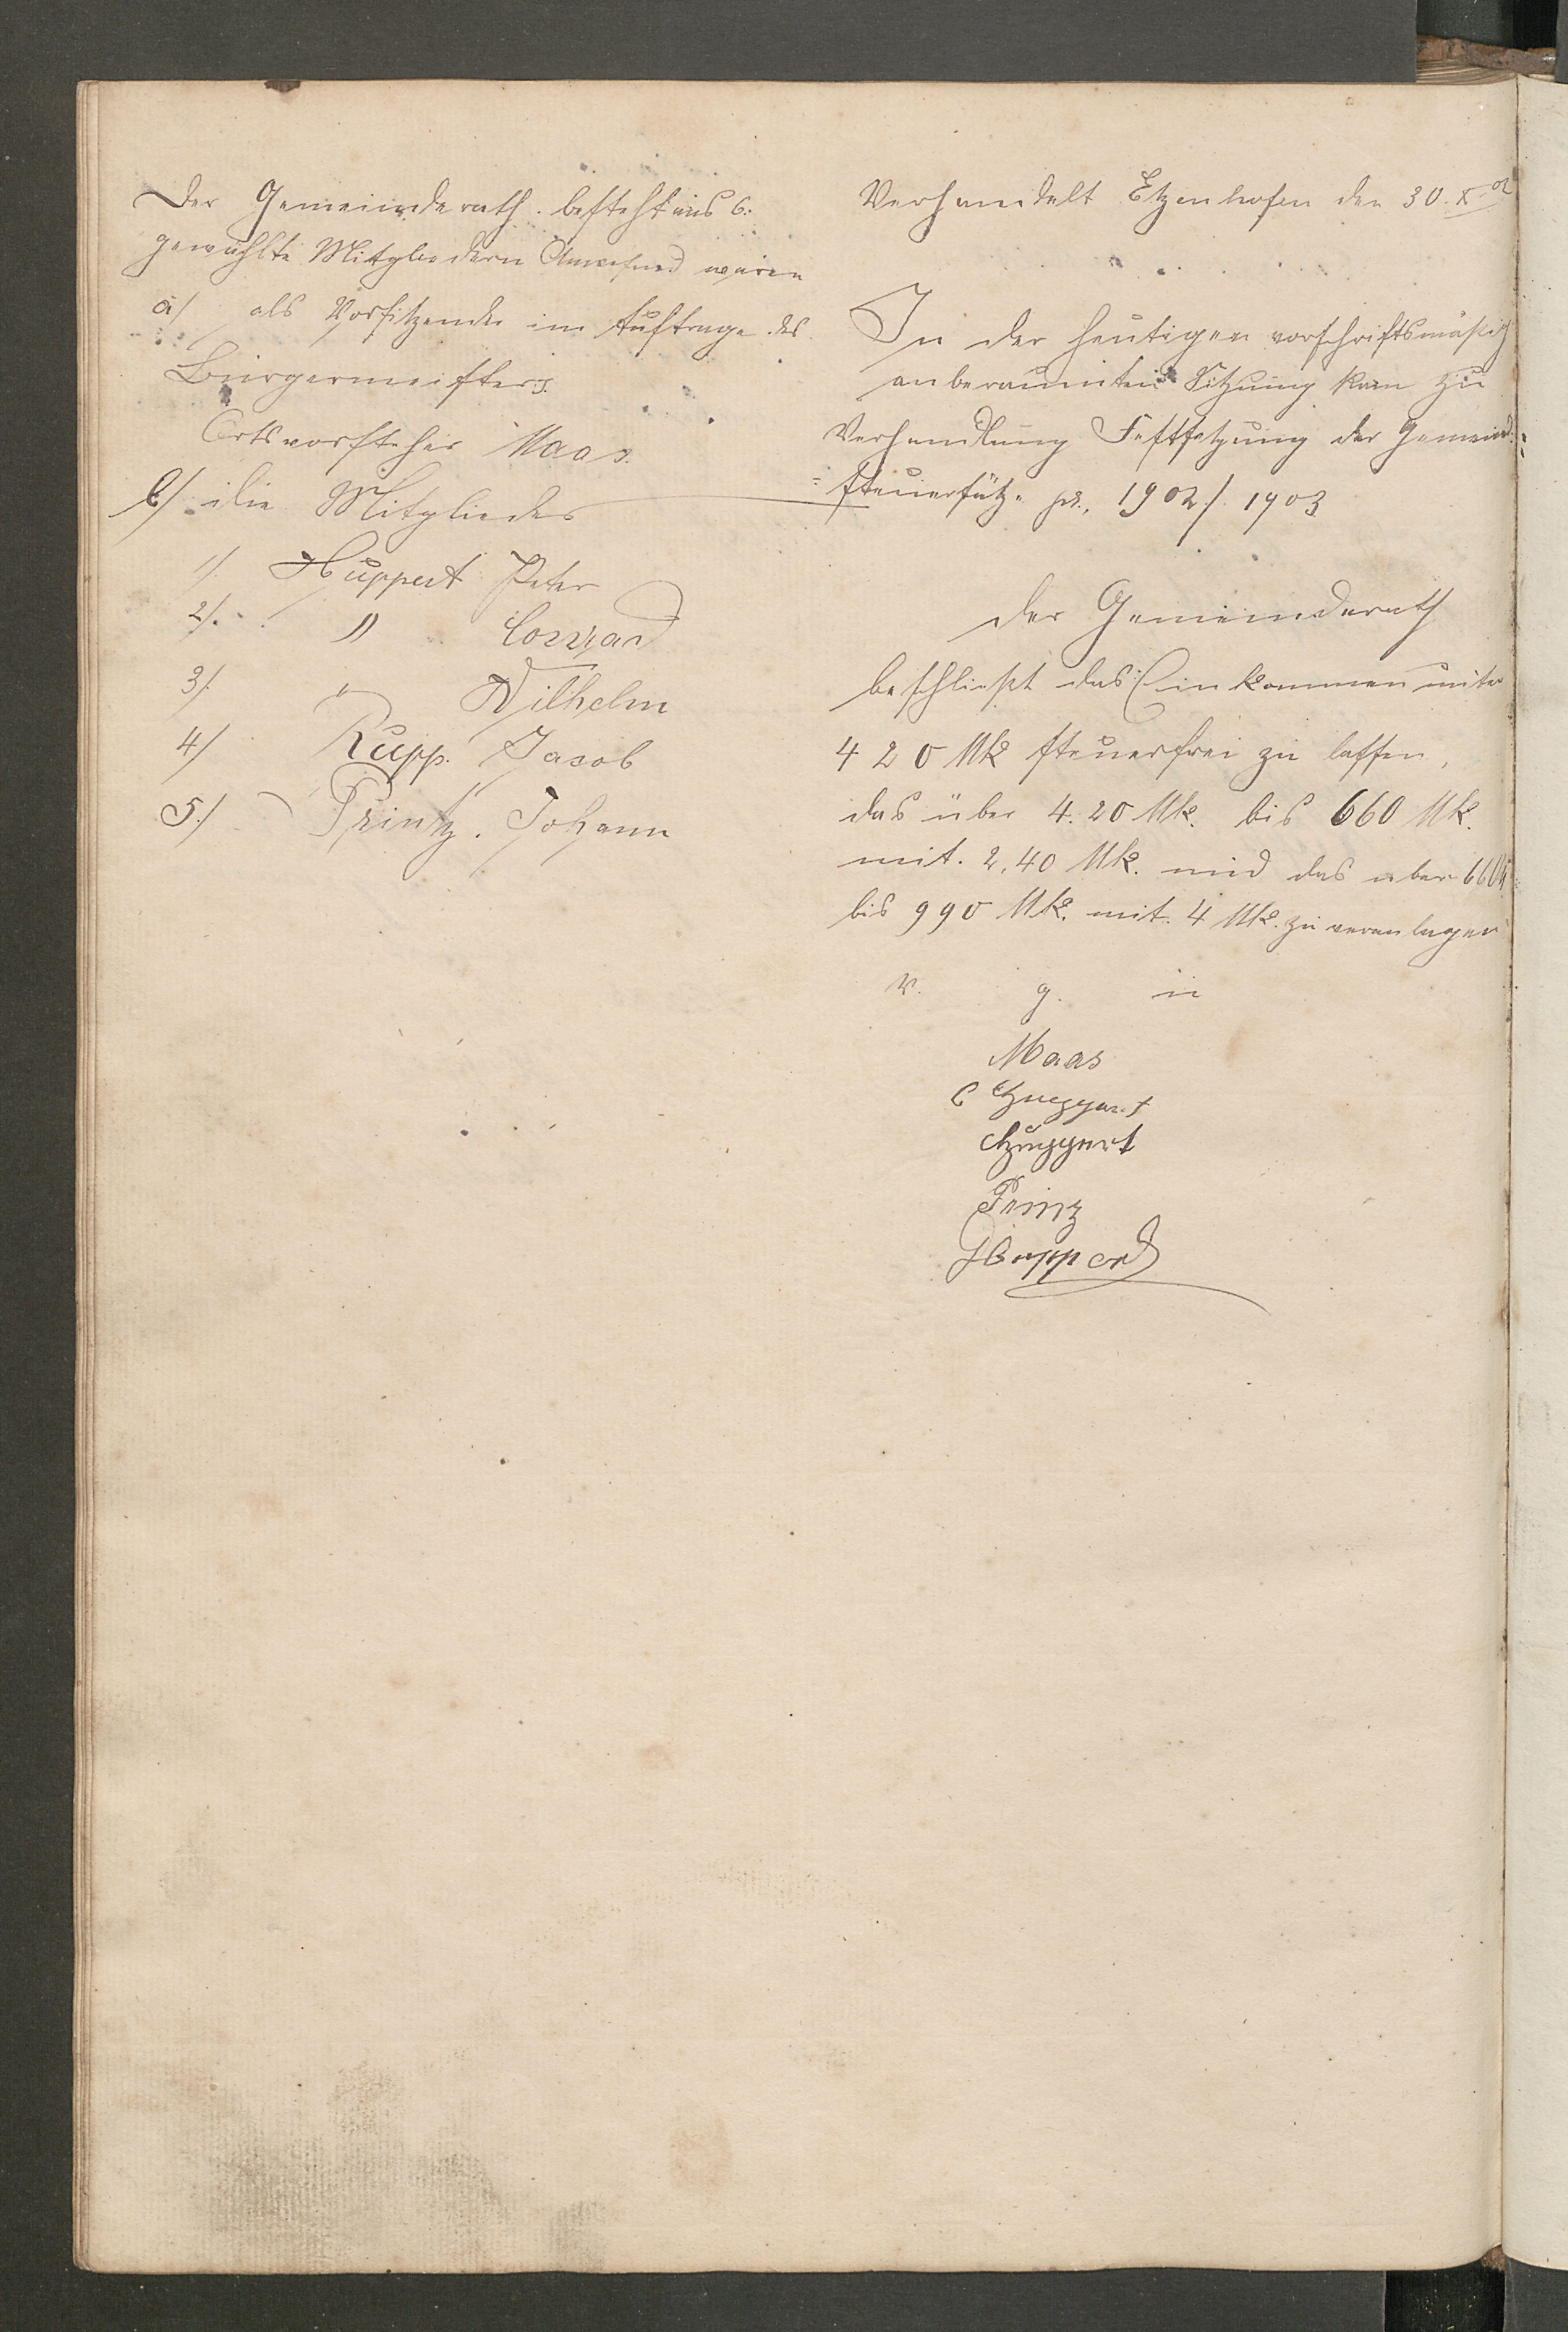 Der Gemeinderath. besteht aus 6.
gewählte Mitgliedern Anwesend waren
a/ als Vorsitzender im Auftrage des
Bürgermeisters.
Ortsvorsteher Maas.
b/ die Mitglieder
1/. Huppert Peter
2/. " Conrad
3/. " Wilhelm
4/ Rupp. Jacob
5./ Printz. Johann
Verhandelt Etzenhofen den 30. X. 02
In der heutigen vorschriftsmäßig
anberaumten Sitzung kam zu
Verhandlung Festsetzung der Gemeind:
=steuersätze pr. 1902/. 1903
Der Gemeinderath
beschließt das Einkommen unter
420 Mk steuerfrei zu lassen,
das über 4.20 Mk. bis 660 Mk.
mit. 2,40 Mk. und das über 660
bis 990 Mk. mit. 4 Mk. zu veranlagen
v. g. u
Maas
C Huppert
Huppert
Prinz
Huppert